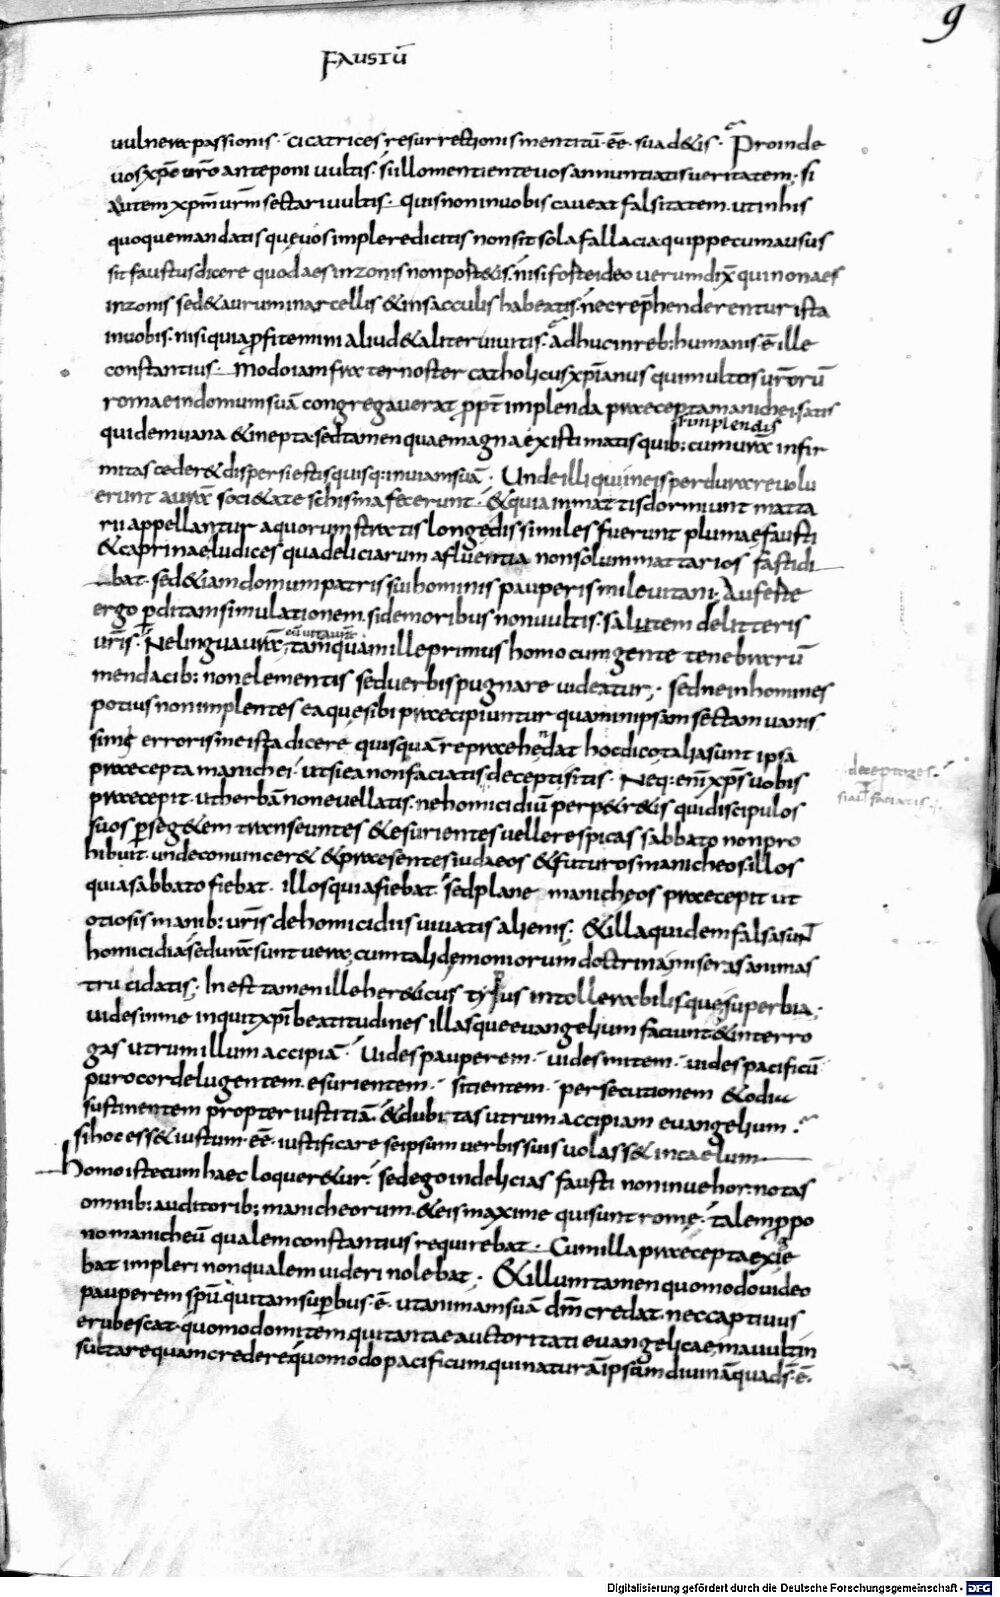 9
FAUSTŪ
uulnera passionis · cicatrices resurrectionis mentitū · ēē · suadetis · Proinde
uos xp̄o ur̄o anteponi uultis · si illo mentiente uos annuntiatis ueritatem · si
autem xp̄m ur̄m sectari uultis · quis non in uobis caueat falsitatem · ut in his
quoque mandatis que uos implere dicitis non sit sola fallacia quippe cum ausus
sit faustus dicere quod aes in zonis non post&is · nisi forte ideo uerum dix̄ qui non aes
in zonis sed & aurum in arcellis & in sacculis habeatis · nec rep̄henderentur ista
in uobis · nisi quia p̄fitemini aliud & aliter uiuitis · Adhuc in reb: humanis · ē · ille
constantius · modo iam frater noster catholicus xp̄ianus qui multos ur̄orū
romae in domum suā congregauerat p̄pt̄ implenda praecepta manichei · satis
quidem uana & inepta · sed tamen quae magna existimatis quib: cum ur̄a infir
implendis
mitas ceder& dispersi estis quisq: in uiam suā · Unde illi qui in eis perdurare uolu
erunt a ur̄a soci&ate schisma fecerunt · & quia in mattis dormiunt matta
rii appellantur a quorum stratis longe dissimiles fuerunt plumae fausti
& caprinae lodices qua deliciarum afluentia non solum mattarios fastidi
bat · sed &iam domum patris sui hominis pauperis mileuitani · Auferte
ergo p̄ditam simulationem · si de moribus non uultis · saltem de litteris
ur̄is · Ne lingua ur̄a · tamquam ille primus homo cum gente tenebrarū
mendacib: non elementis sed uerbis pugnare uideatur · sed ne in homines
potius non implentes ea que sibi praecipiuntur quam in ipsam sectam uanis
simę erroris me ista dicere quisquā reprehendat hoc dico talia sunt ipsa
praecepta manichei · ut si ea non faciatis deceptisitis · Neq: enī xp̄s uobis
deceptores ·
si aūt faciatis ·
praecepit · ut herbā non euellatis · ne homicidiū perp&r&is qui discipulos
suos p̄ seg&em transeuntes & esurientes uellere spicas sabbato non pro
hibuit · unde conuincer& & praesentes iudaeos & futuros manicheos · illos
quia sabbato fiebat · illos quia fiebat · sed plane manicheos praecepit ut
otiosis manib: ur̄is de homicidiis uiuatis alienis · & illa quidem falsa sunt
homicidia sed ur̄a sunt uera cum tali demoniorum doctrina miseras animas
trucidatis · Inest tamen ille her&icus tyfus intollerabilisque superbia ·
uides in me inquit xp̄i beatitudines illas que euangelium faciunt & interro
gas utrum illum accipiā · Uides pauperem · uides mitem · uides pacificū
puro corde lugentem esurientem · sitientem · persecutionem & odia
sustinentem propter iustitiā · & dubitas utrum accipiam euangelium ·
si hoc ess& iustum · ēē · iustificare se ipsum uerbis suis uolass& in caelum ·
homo iste cum haec loquer&ur · sed ego in delicias fausti non inuehor · notas
omnib: auditorib: manicheorum · & eis maxime qui sunt romę · talem p̄po
no manicheū qualem constantius requirebat · Cum illa praecepta exige
bat impleri non qualem uideri nolebat · & illum tamen quomodo uideo
pauperem sp̄u qui tam sup̄bus · ē · ut animam suā dm̄ credat · nec captiuus
erubescat · quomodo mitem qui tantae auctoritati euangelicae mauult in
sultare quam credere quomodo pacificum qui naturā ipsam diuinā qua d̄s · ē ·
Digitalisierung gefördert durch die Deutsche Forschungsgemeinschaft - DFG